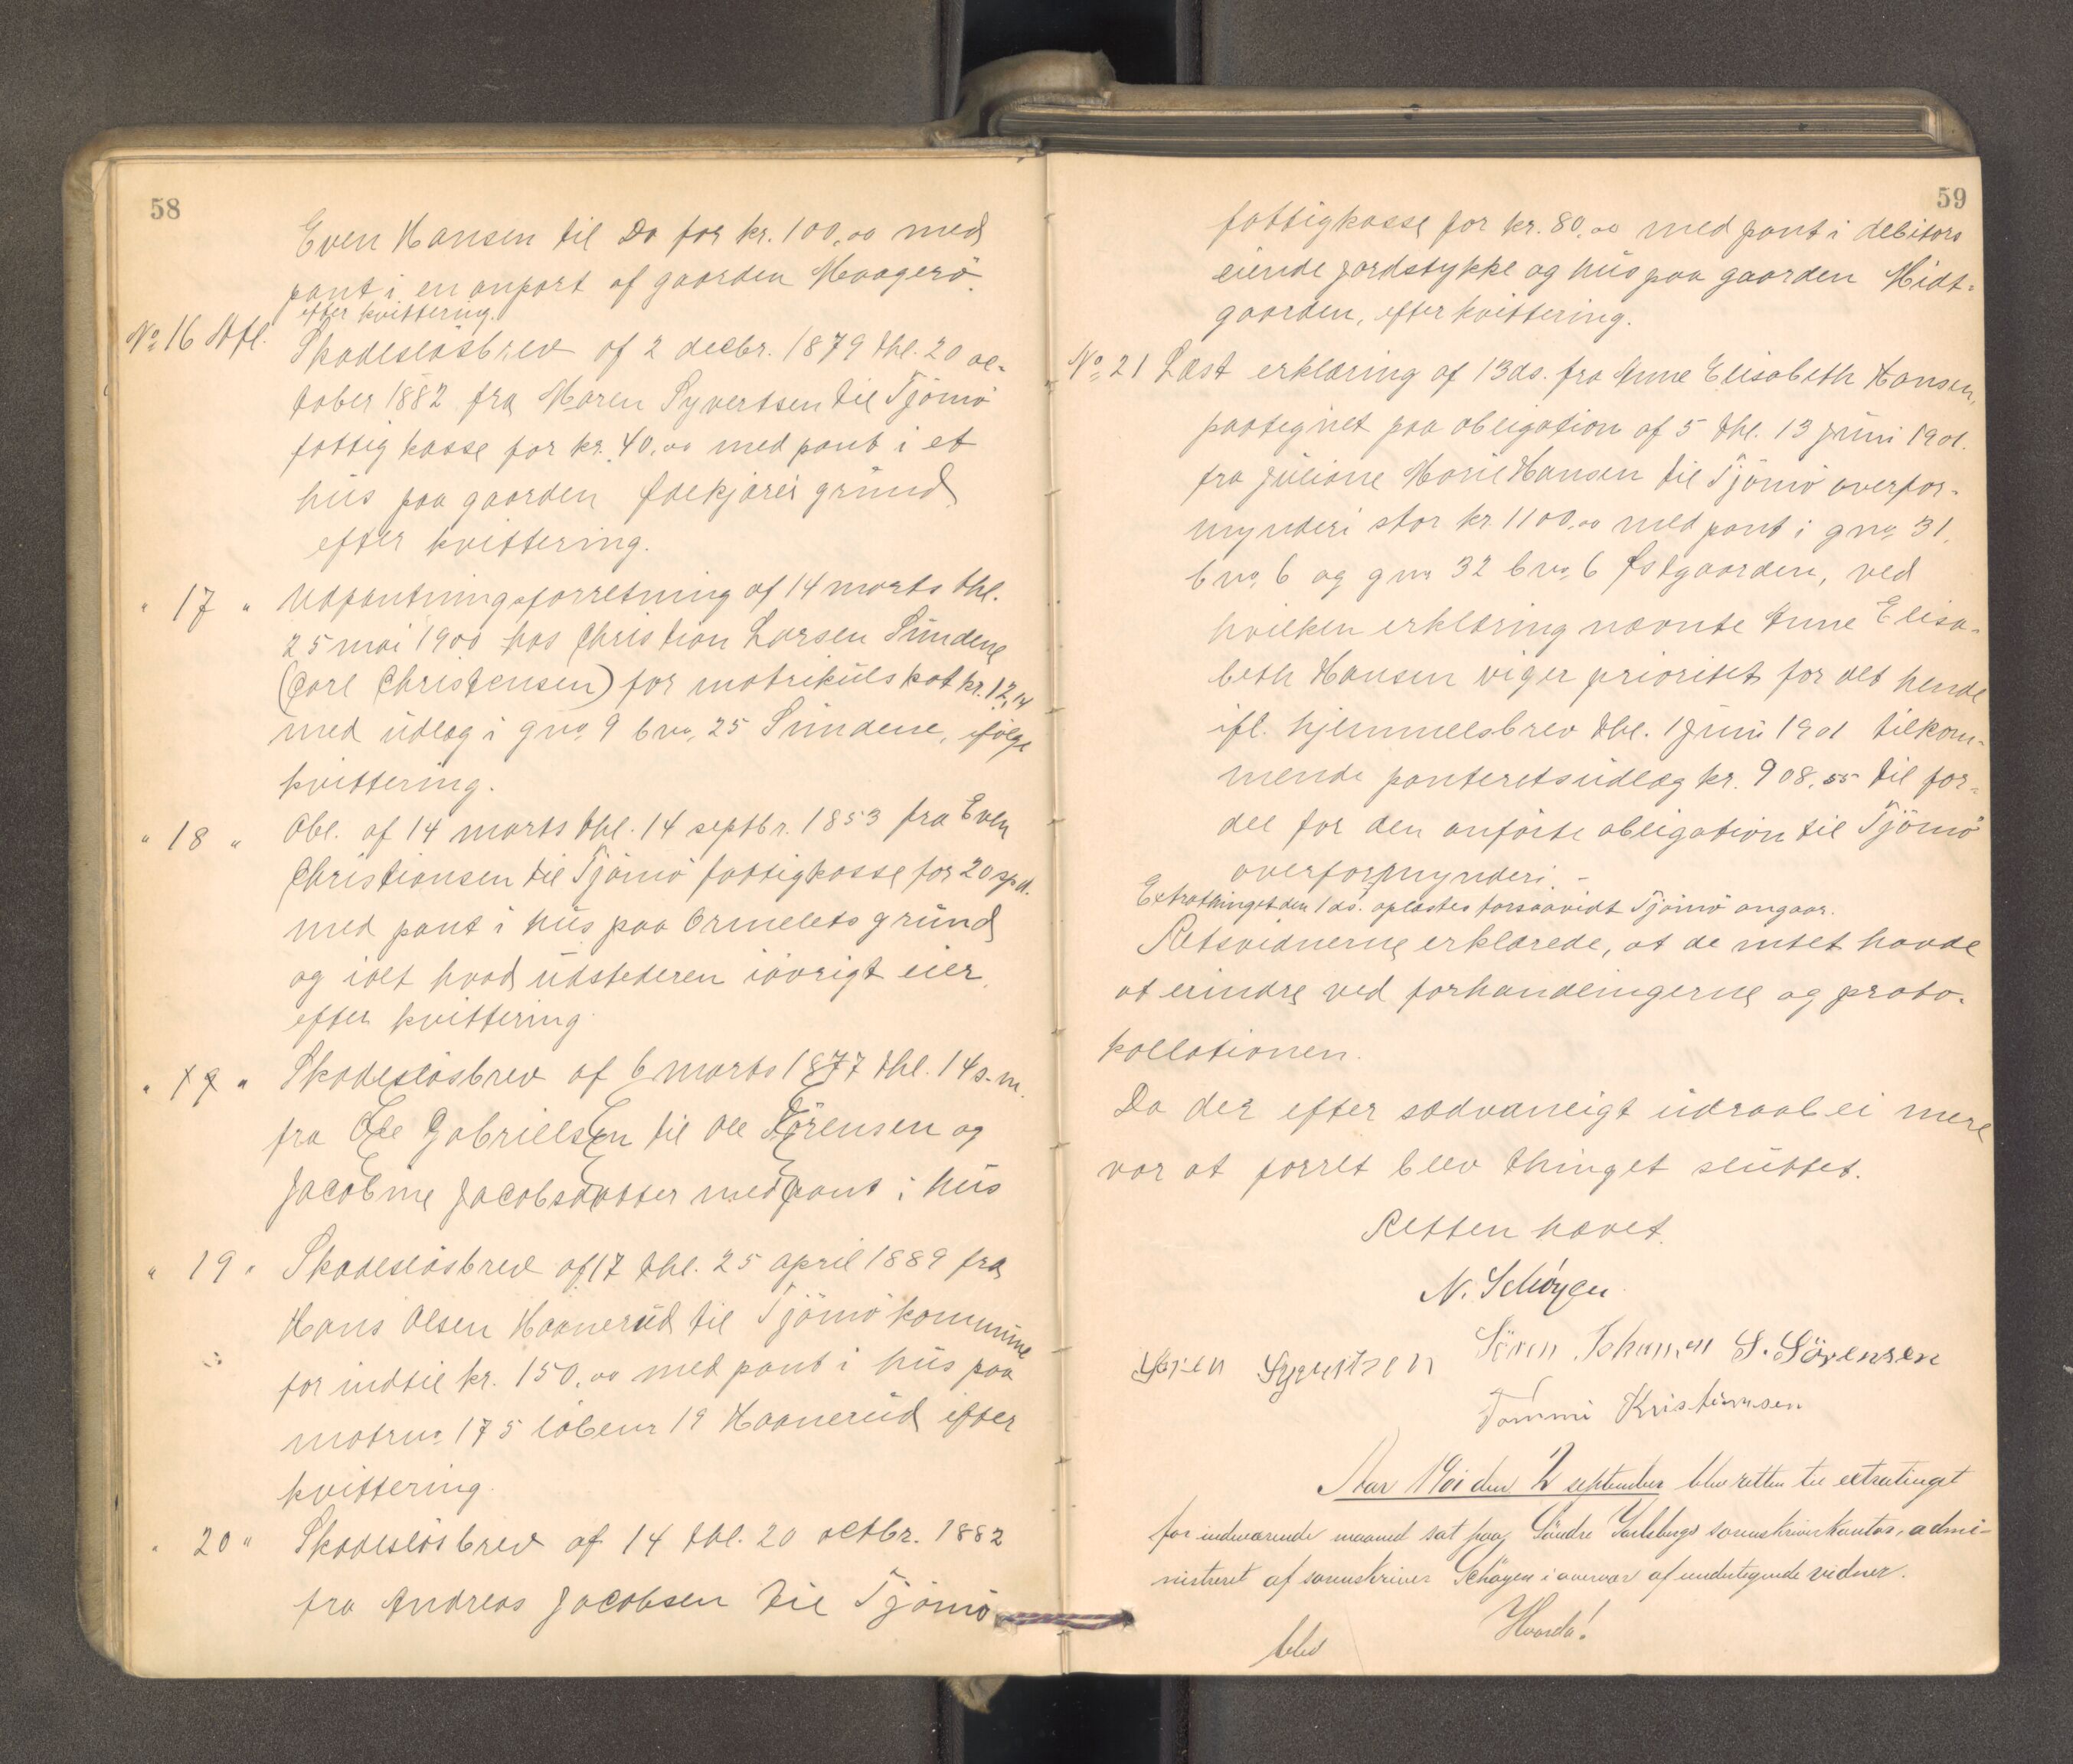 58
Even Hansen til Do for kr. 100,00 med
pant i en anpart af gaarden Maagerö
efter kvittering.
No 16 Afl. Skadeslösbrev af 2 decbr. 1879 thl. 20 oc-
tober 1882 fra Maren Syvertsen til Tjömö
fattigkasse for kr. 40,00 med pant i et
hus paa gaarden Ødekjærs grund
efter kvittering.
" 17 " Udpantningsforretning af 14 marts thl.
25 mai 1900 hos Christian Larsen Sundene
(Carl Christensen) for matrikulskat kr. 12,14
med udlæg i gno 9 bno 25 Sundene, ifölge
kvittering.
" 18 " Obl. af 14 marts thl. 14 septbr. 1853 fra Even
Christiansen til Tjömö fattigkasse for 20 spd.
med pant i hus paa Ormelets grund
og ialt hvad udstederen iövrigt eier,
efter kvittering.
" 19 " Skadeslösbrev af 6 marts 1877 thl. 14 s.m.
fra Ole Gabrielsen til Ole Sörensen og
Jacobine Jacobsdatter med pant i hus
" 19 " Skadeslösbrev af 17 thl. 25 april 1889 fra
Hans Olsen Haanerud til Tjömö kommune
for indtil kr. 150,00 med pant i hus paa
matrno 175 löbenr 19 Haanerud efter
kvittering.
" 20 " Skadeslösbrev af 14 thl. 20 octbr. 1882
fra Andreas Jacobsen til Tjömö
59
fattigkasse for kr. 80,00 med pant i debitors
eiende jordstykke og hus paa gaarden Midt-
gaarden, efter kvittering.
No 21 Læst erklæring af 13 ds. fra Anne Elisabeth Hansen,
paategnet paa obligation af 5 thl. 13 juni 1901.
fra Juliane Marie Hansen til Tjömö overfor-
mynderi stor kr. 1100,00 med pant i gno 31,
bno 6 og gno 32 bno 6 Østgaarden, ved
hvilken erklæring nævnte Anne Elisa-
beth Hansen viger prioritet for det hende
ifl. hjemmelsbrev thl. 1 juni 1901 tilkom-
mende panteretsudlæg kr. 908,55 til for-
del for den anförte obligation til Tjömö
overformynderi. -
Extrathinget den 1 ds. oplæstes forsaavidt Tjömö angaar.
Retsvidnerne erklærede, at de intet havde
at erindre ved forhandlingerne og proto-
kollationen.
Da der efter sædvanligt udraab ei mere
var at forret blev thinget sluttet.
Retten hævet.
N. Schöyen
Sören Johannes S. Sörensen
Syvertsen
Tommi Kristiansen
Aar 1901 den 2 september blev retten til extratinget
for indeværende maaned sat paa Söndre Jarlsbergs sorenskriverkontor, admi-
nistreret af sorenskriver Schöyen i overvær af undertegnede vidner.
Hvorda!
blev